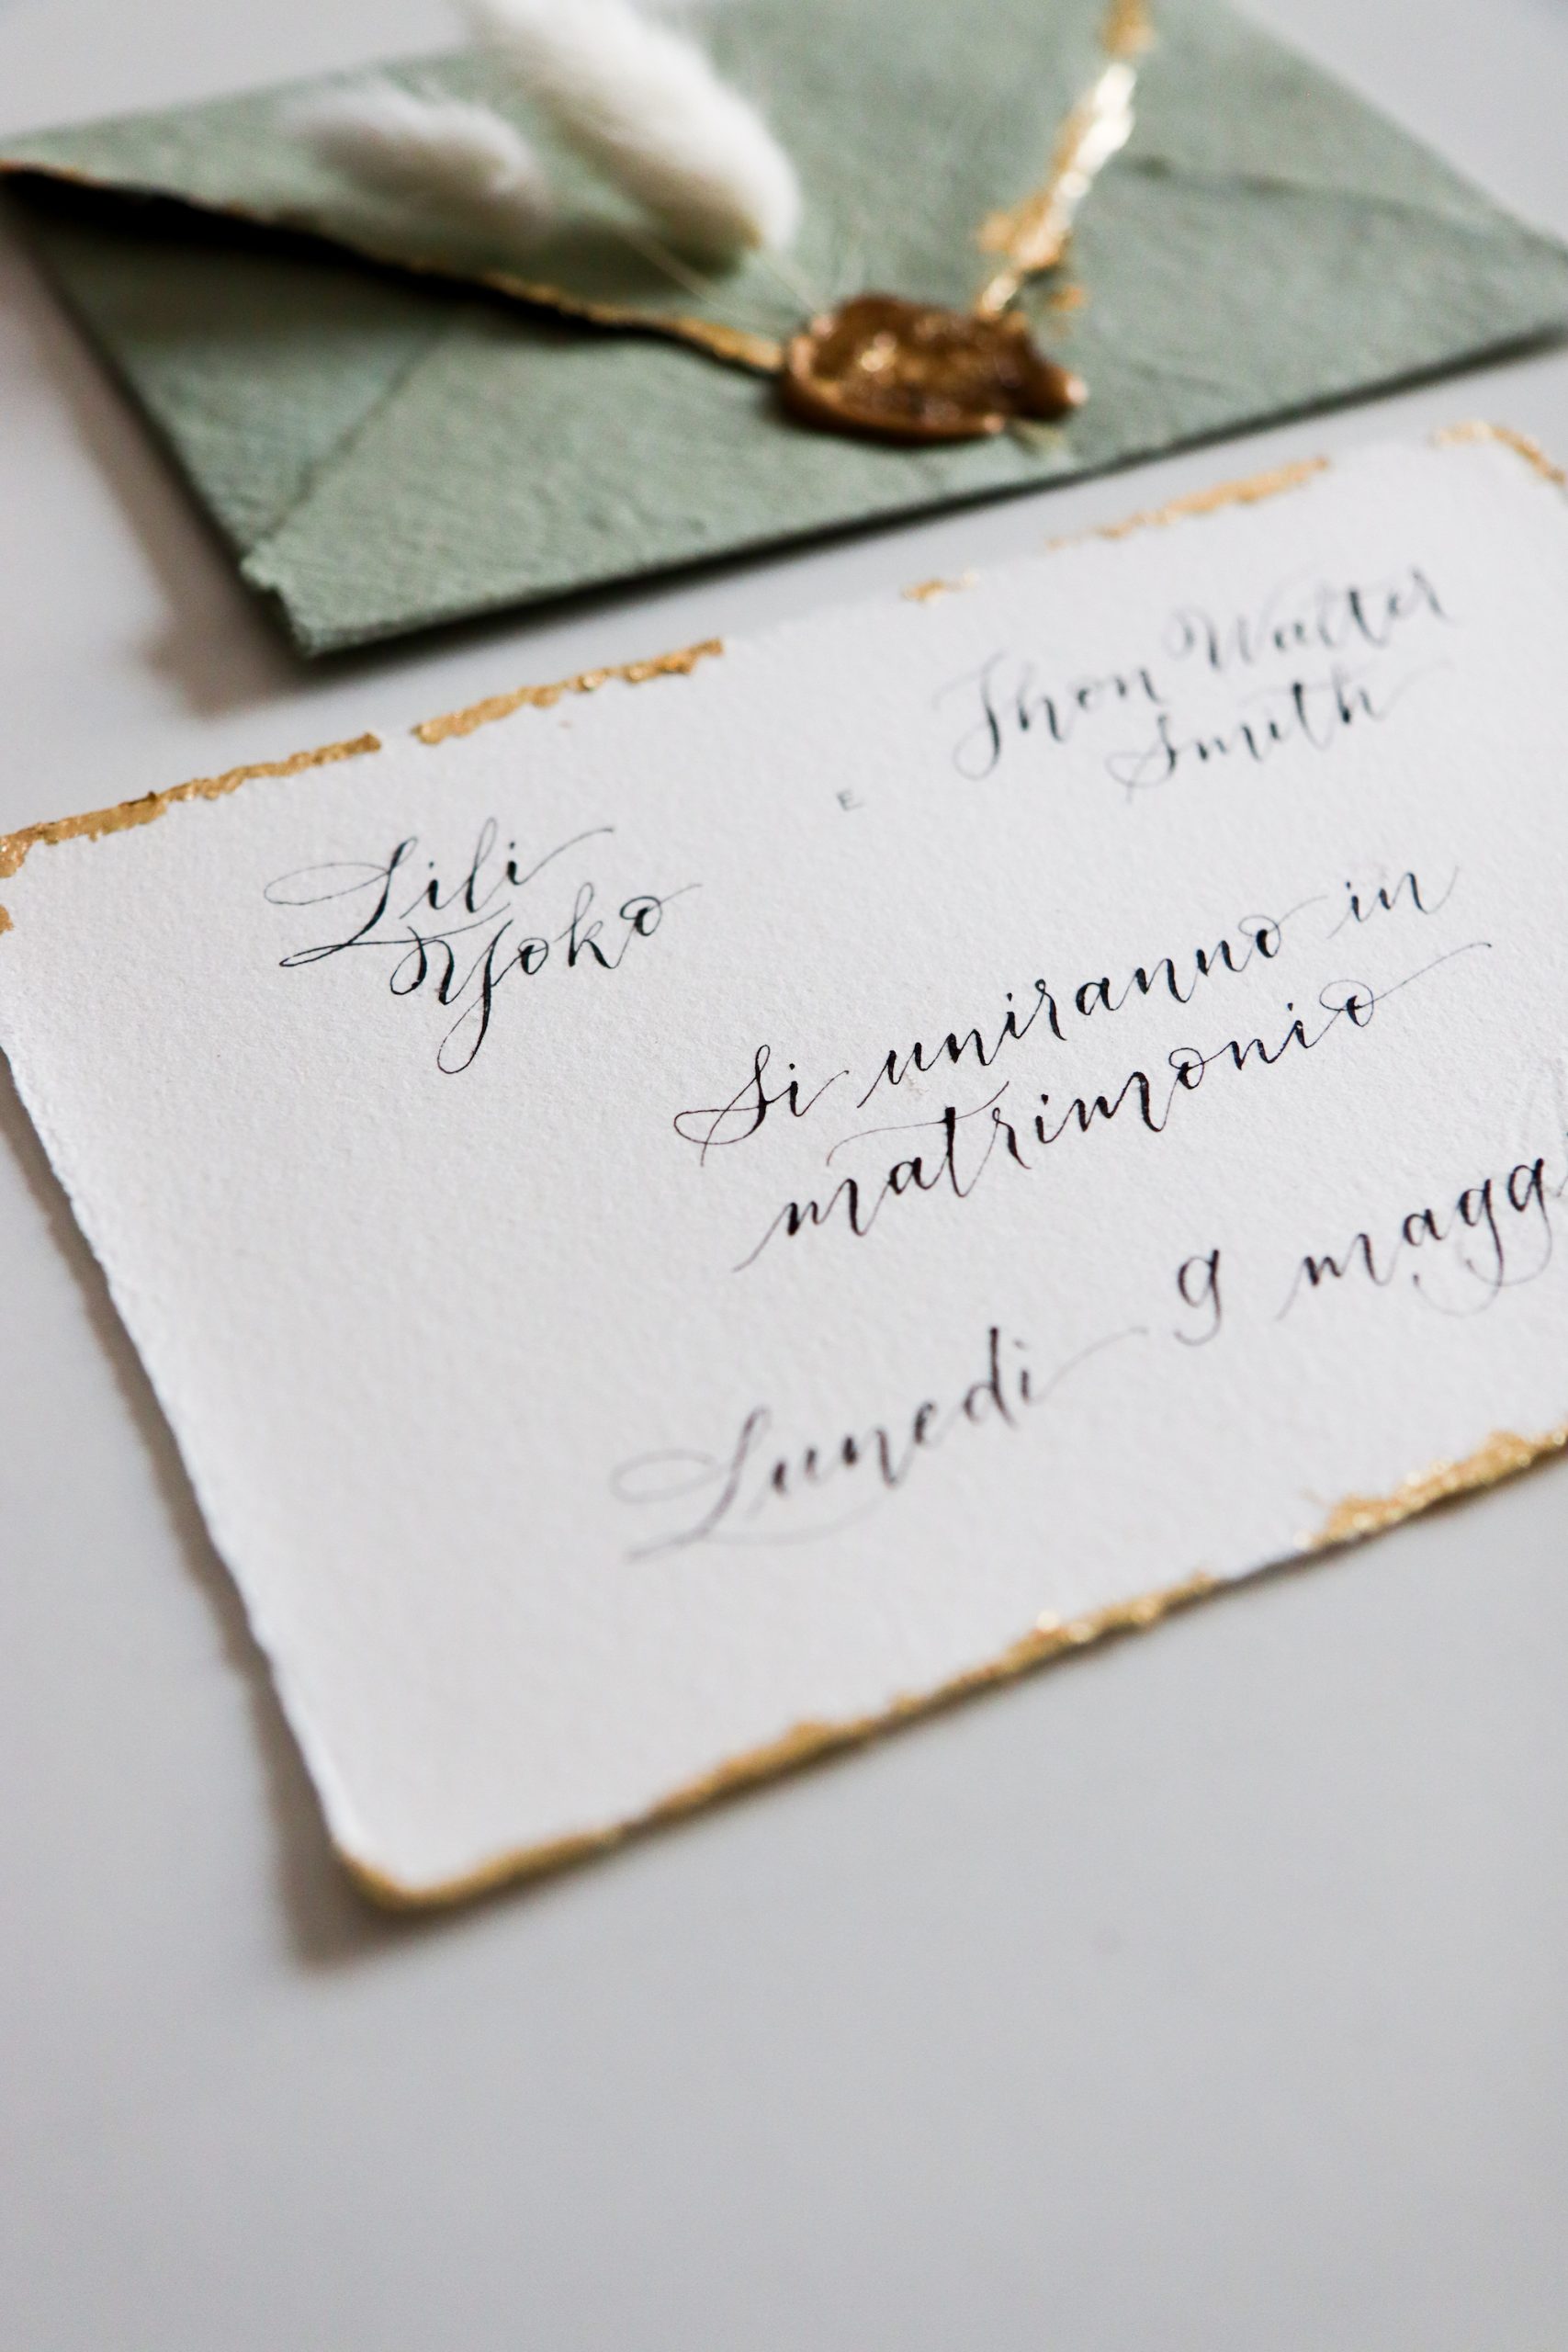 Lili
Yoko
E
Jhon Walter
Smith
Si uniranno in
matrimonio
Lunedi 9 magg